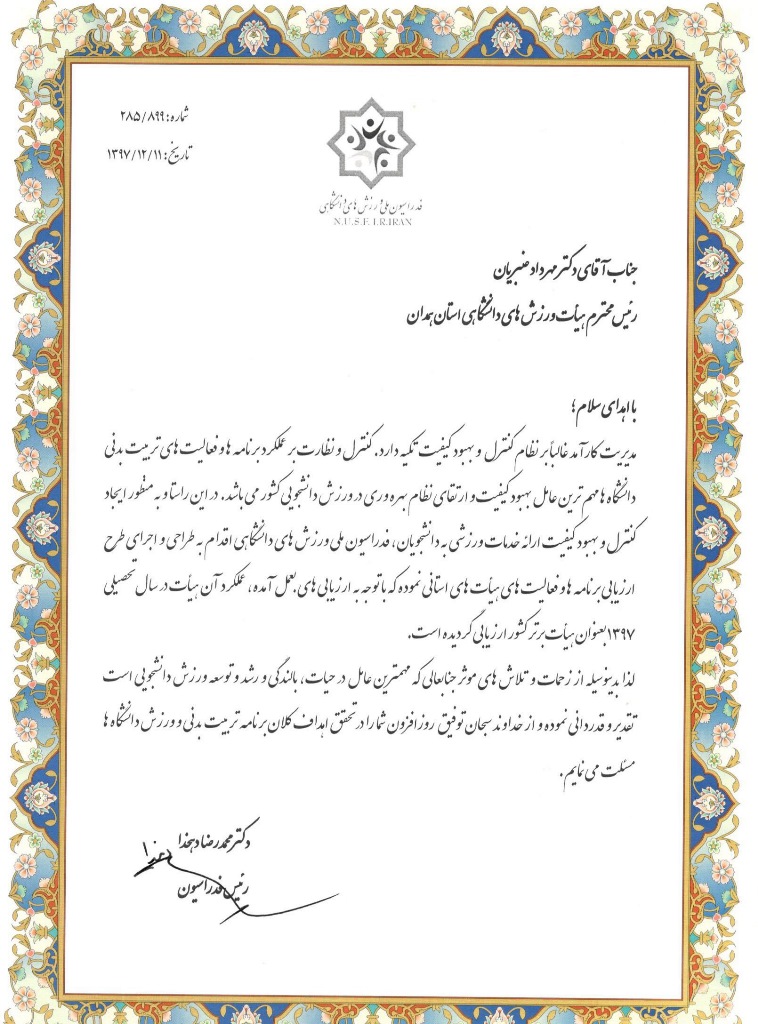 شماره: ۲۸۵/۸۹۹
تاریخ: ۱۳۹۷/۱۲/۱۱
فدراسیون ملی ورزش های دانشگاهی
N.U.S.F. I.R.IRAN
جناب آقای دکتر مهرداد عنبریان
رئیس محترم هیأت ورزش های دانشگاهی استان همدان
با اهدای سلام؛
مدیریت کارآمد غالباً بر نظام کنترل و بهبود کیفیت تکیه دارد. کنترل و نظارت بر عملکرد برنامه ها و فعالیت های تربیت بدنی
دانشگاه ها مهم ترین عامل بهبود کیفیت و ارتقای نظام بهره وری در ورزش دانشجویی کشور می باشد. در این راستا و به منظور ایجاد
کنترل و بهبود کیفیت ارائه خدمات ورزشی به دانشجویان، فدراسیون ملی ورزش های دانشگاهی اقدام به طراحی و اجرای طرح
ارزیابی برنامه ها و فعالیت های هیأت های استانی نموده که با توجه به ارزیابی های بعمل آمده، عملکرد آن هیأت در سال تحصیلی
۱۳۹۷ بعنوان هیأت برتر کشور ارزیابی گردیده است.
لذا بدینوسیله از زحمات و تلاش های موثر جنابعالی که مهمترین عامل در حیات، بالندگی و رشد و توسعه ورزش دانشجویی است
تقدیر و قدردانی نموده و از خداوند سبحان توفیق روزافزون شما را در تحقق اهداف کلان برنامه تربیت بدنی و ورزش دانشگاه ها
مسئلت می نمایم.
دکتر محمدرضا دهخدا
رئیس فدراسیون